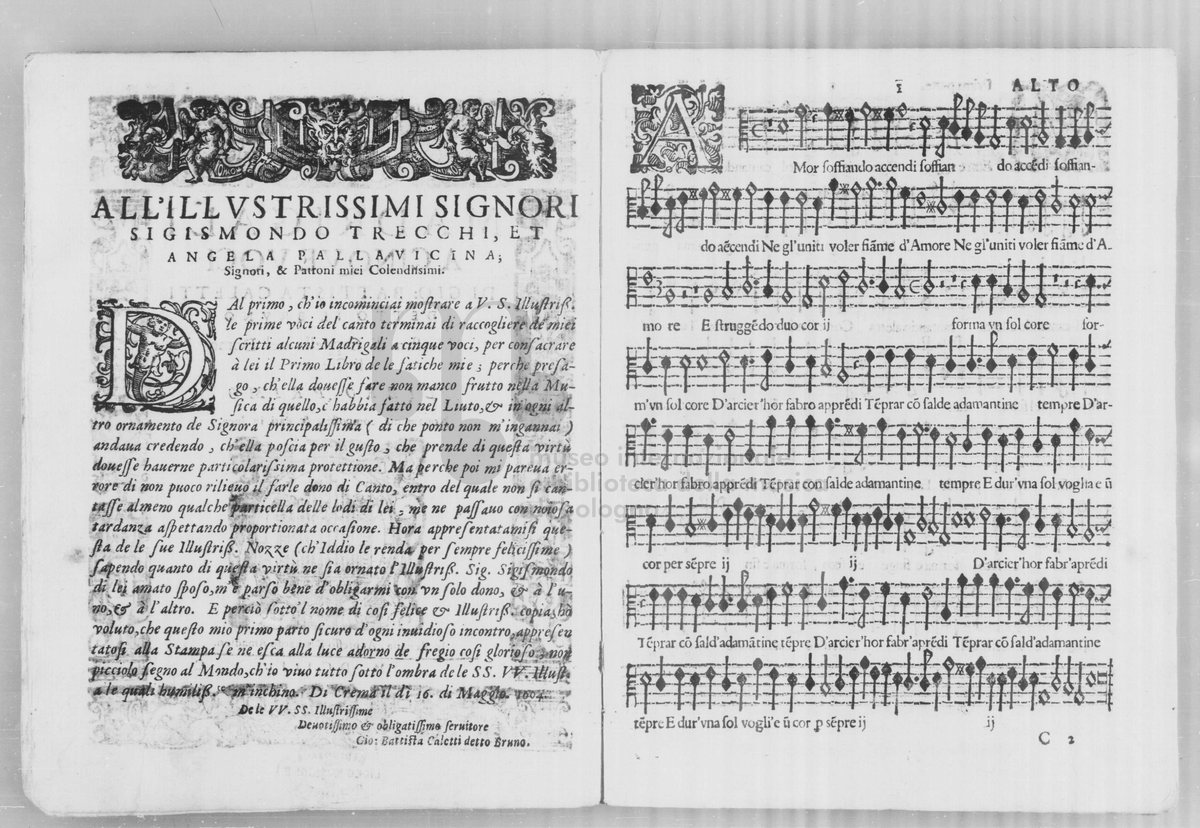 ALL'ILLVSTRISSIMI SIGNORI
SIGISMONDO TRECCHI, ET
ANGELA PALLAVICINA;
Signori, & Patroni miei Colendissimi.
DAl primo, ch'io incominciai mostrare a V. S. Illustriß.
le prime voci del canto terminai di raccogliere de miei
scritti alcuni Madrigali a cinque voci, per consacrare
à lei il Primo Libro de le fatiche mie; perche presa-
go, ch'ella douesse fare non manco frutto nella Mu-
sica di quello, c'habbia fatto nel Liuto, & in ogni al-
tro ornamento de Signora principalissima (di che ponto non m'ingannai)
andaua credendo, ch'ella poscia per il gusto, che prende di questa virtù
douesse hauerne particolarissima protettione. Ma perche poi mi pareua er-
rore di non puoco rilieuo il farle dono di Canto, entro del quale non si can-
tasse almeno qualche particella delle lodi di lei, me ne passauo con noiosa
tardanza aspettando proportionata occasione. Hora appresentatamisi que-
sta de le sue Illustriß. Nozze (ch'Iddio le renda per sempre felicissime)
sapendo quanto di questa virtù ne sia ornato l'Illustriß. Sig. Sigismondo
di lei amato sposo, m'è parso bene d'obligarmi con vn solo dono, & à l'u-
no, & à l'altro. E perciò sotto'l nome di cosi felice & Illustriß. copia, hò
voluto, che questo mio primo parto sicuro d'ogni inuidioso incontro, appresen
tatosi alla Stampa se ne esca alla luce adorno de fregio cosi glorioso; non
picciolo segno al Mondo, ch'io viuo tutto sotto l'ombra de le SS. VV. Illust.
a le quali humiliß. m'inchino. Di Crema il dì 16. di Maggio. 1604.
De le VV. SS. Illustrissime
Deuotissimo & obligatissimo seruitore
Gio: Battista Caletti detto Bruno.
1 ALTO
AMor soffiando accendi soffian do accēdi soffian-
do accendi Ne gl'uniti voler fiāme d'Amore Ne gl'uniti voler fiāme d'A-
mo re E struggēdo duo cor ij forma vn sol core for-
m'vn sol core D'arcier'hor fabro apprēdi Tēprar cō salde adamantine tempre D'ar-
cier'hor fabro apprēdi Tēprar con salde adamantine tempre E dur'vna sol voglia e ū
cor per sēpre ij ij D'arcier'hor fabr'aprēdi
Tēprar cō sald'adamātine tēpre D'arcier'hor fabr'aprēdi Tēprar cō sald'adamantine
tēpre E dur'vna sol vogli'e ū cor ꝑ sēpre ij ij
C 2
museo internazionale
e biblioteca della musica
di bologna